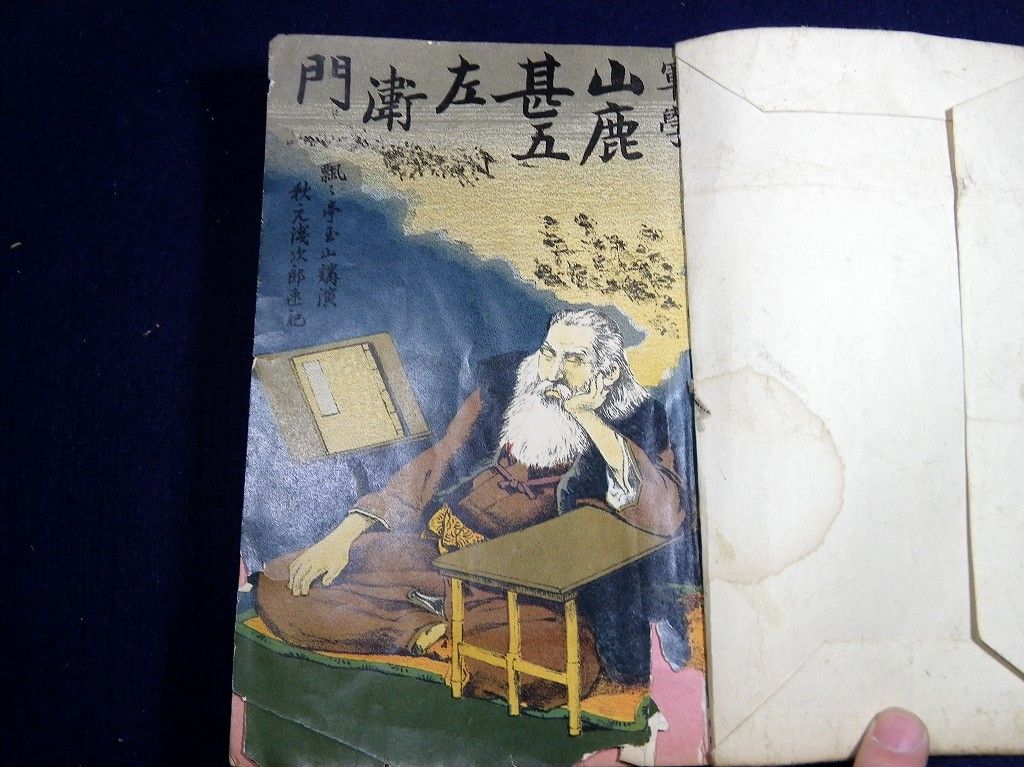 軍學
山鹿
甚五
左
衛
門
飄々亭玉山講演
秋元浅次郎速記